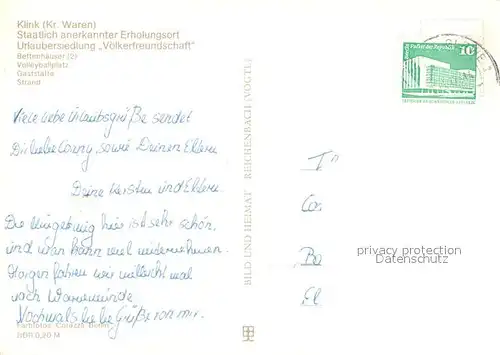 Klink (Kr. Waren)
Staatlich anerkannter Erholungsort
Urlaubersiedlung „Völkerfreundschaft"
Bettenhäuser (2)
Volleyballplatz
Gaststätte
Strand
Viele liebe Urlaubsgrüße sendet
Dir liebe Conny, sowie Deinen Eltern
Deine Kerstin und Eltern.
Die Umgebung hier ist sehr schön,
und man kann viel unternehmen.
Morgen fahren wir vielleicht mal
nach Warnemünde.
Nochmals liebe Grüße von mir.
Farbfotos:
DDR 0,20 M
BILD UND HEIMAT REICHENBACH (VOGTL)
Palast der Republik
10
privacy protection
Datenschutz